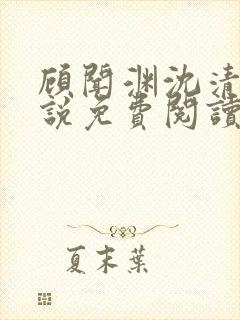 顾闻渊沈清
說免費閱讀
夏末葉